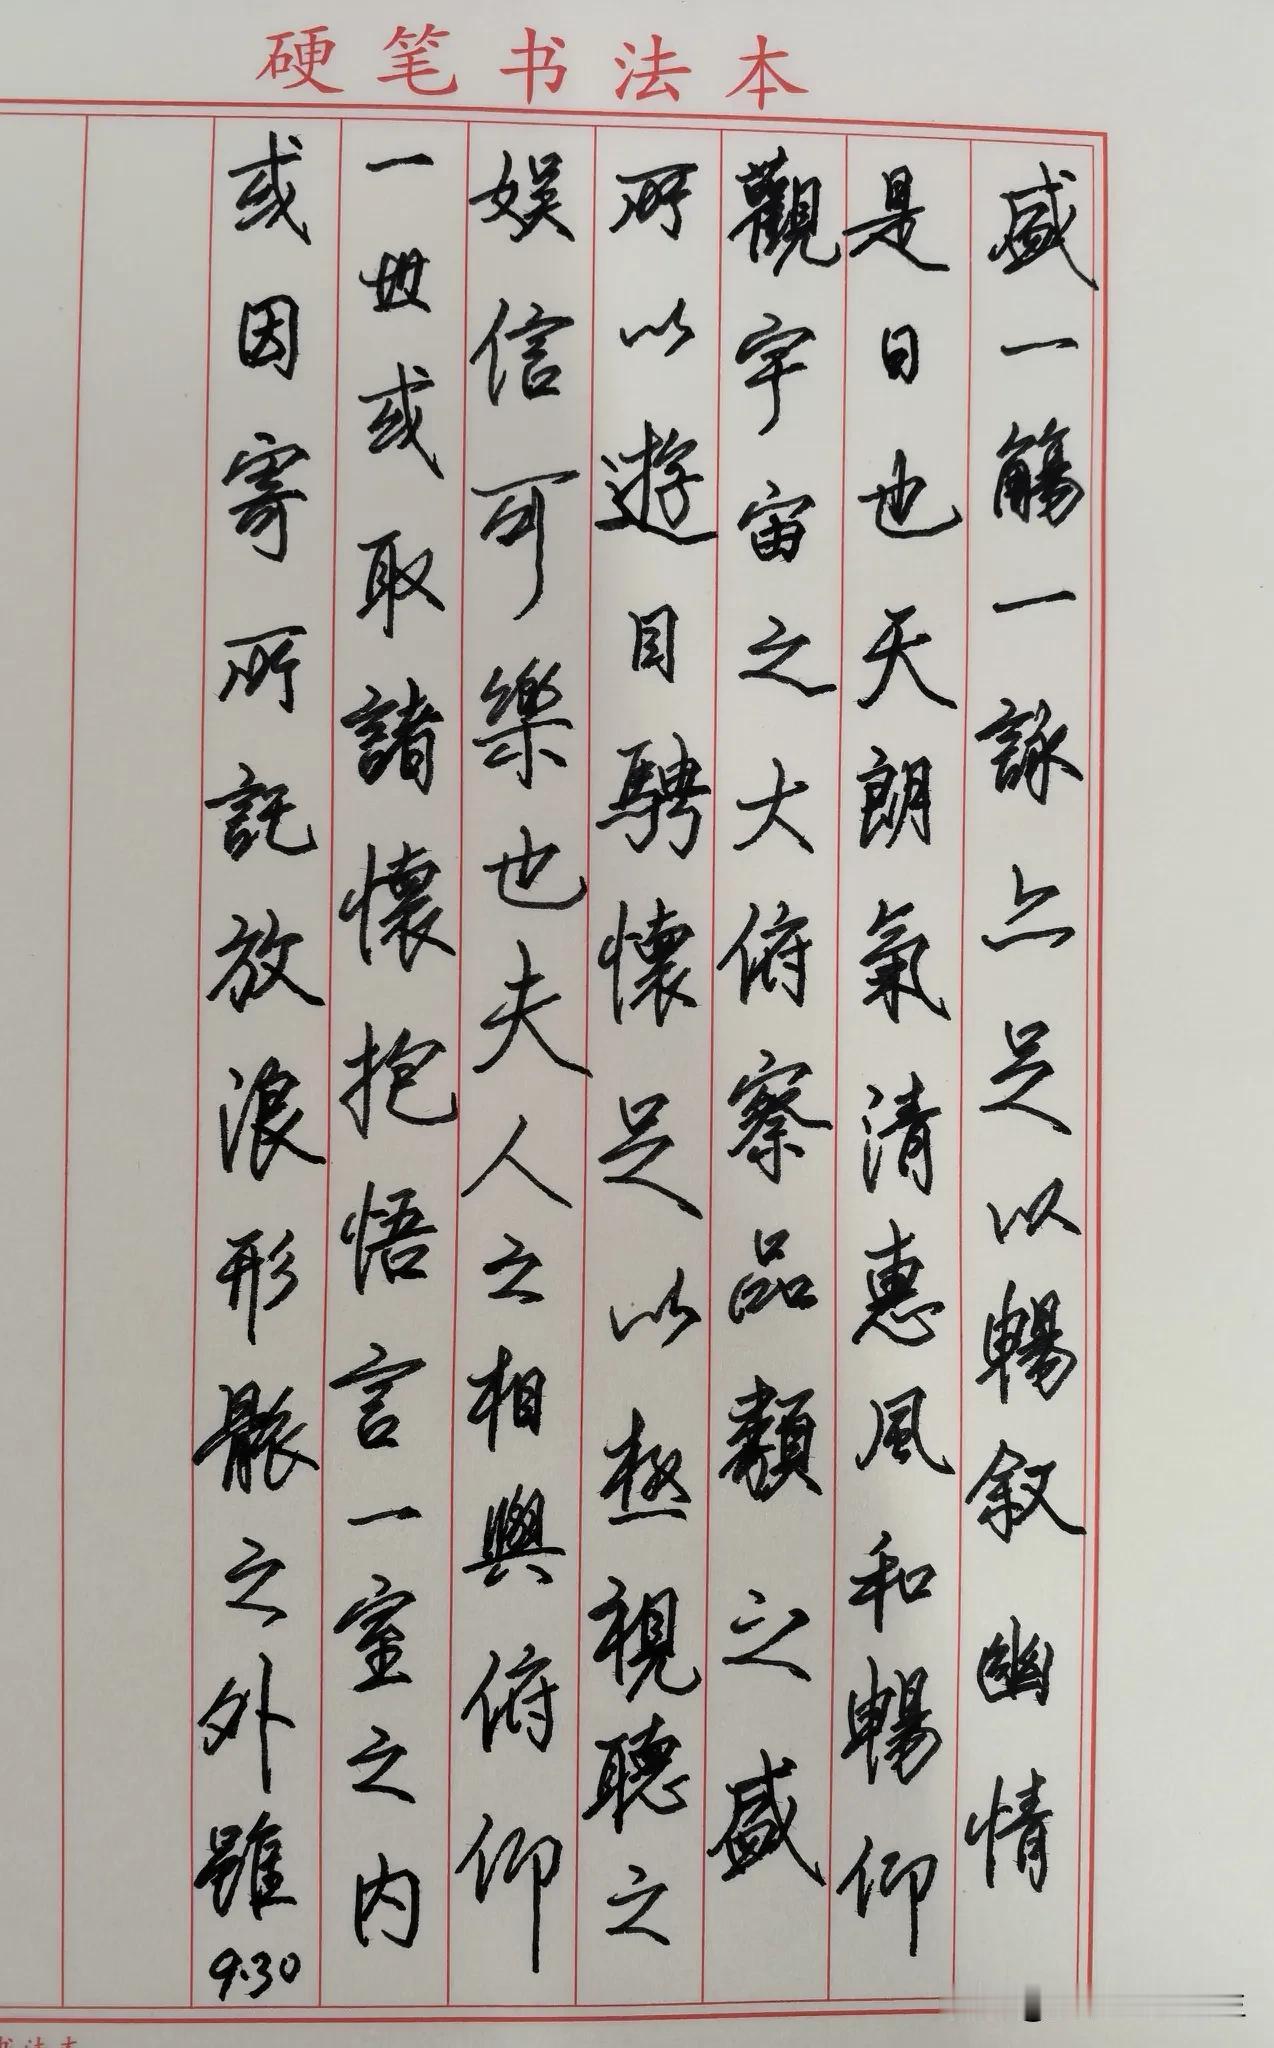 硬笔书法本
盛一觴一詠亦足以暢叙幽情
是日也天朗氣清惠風和暢仰
觀宇宙之大俯察品類之盛
所以遊目騁懷足以極視聽之
娱信可樂也夫人之相與俯仰
一世或取諸懷抱悟言一室之内
或因寄所託放浪形骸之外雖
9.30
书法本